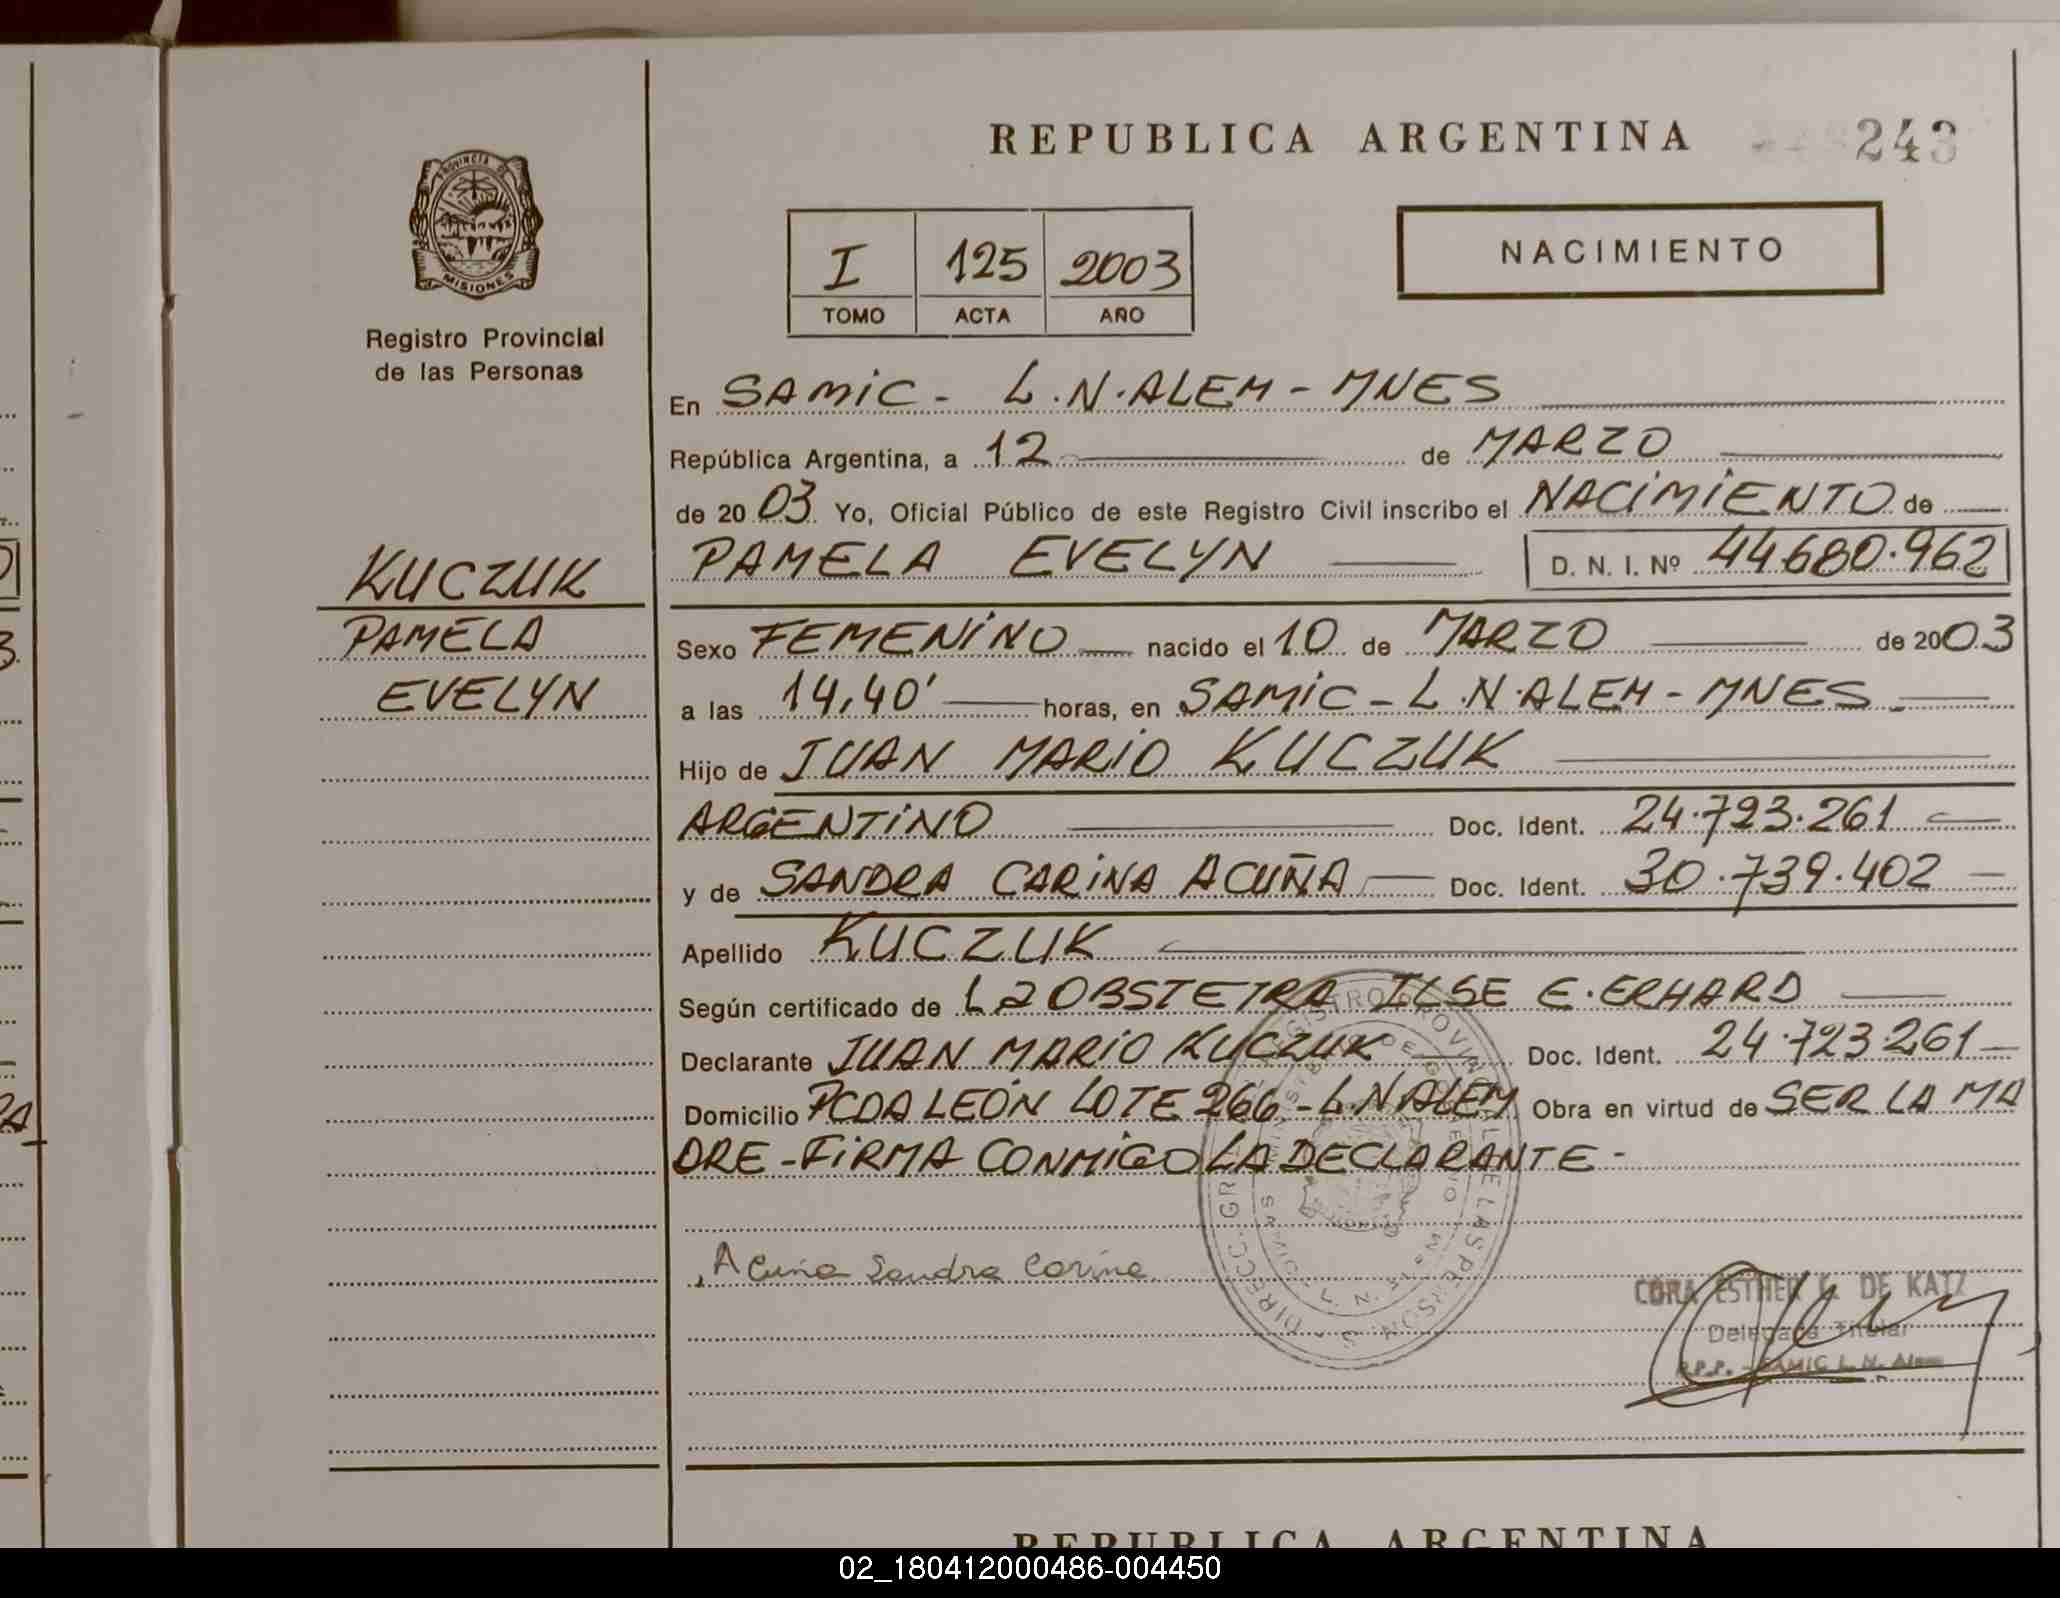 REPUBLICA ARGENTINA 243
PROVINCIA DE
MISIONES
Registro Provincial
de las Personas
I 125 2003
TOMO ACTA AÑO
NACIMIENTO
En SAMIC - L.N.ALEM - MNES
República Argentina, a 12 de MARZO
de 2003 Yo, Oficial Público de este Registro Civil inscribo el NACIMIENTO de
KUCZUK
PAMELA EVELYN D. N. I. Nº 44680.962
PAMELA
EVELYN
Sexo FEMENINO nacido el 10 de MARZO de 2003
a las 14,40' horas, en SAMIC - L.N.ALEM - MNES
Hijo de JUAN MARIO KUCZUK
ARGENTINO Doc. Ident. 24.723.261
y de SANDRA CARINA ACUÑA Doc. Ident. 30.739.402
Apellido KUCZUK
Según certificado de La OBSTETRA ILSE E. ERHARD
Declarante JUAN MARIO KUCZUK Doc. Ident. 24.723.261
Domicilio PCDA LEÓN LOTE 266 - L.N ALEM Obra en virtud de SER LA MA
DRE - FIRMA CONMIGO LA DECLARANTE -
Acuña Sandra Carina
CORA ESTHER G. DE KATZ
Delegada Titular
R.P.P. - SAMIC L. N. Alem
REPUBLICA ARGENTINA
02_180412000486-004450